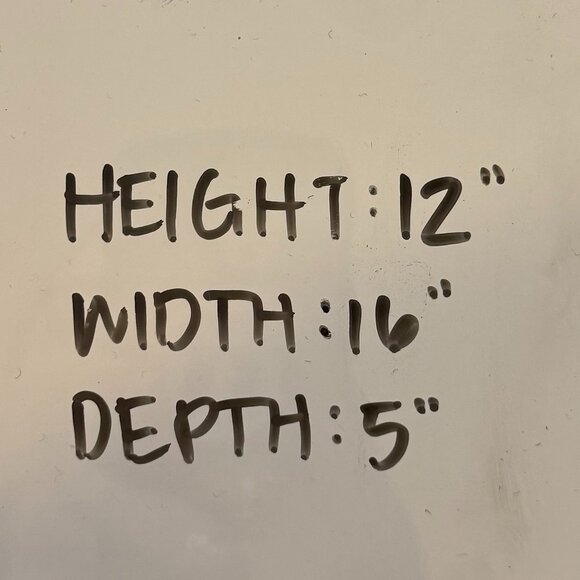 HEIGHT: 12"
WIDTH: 16"
DEPTH: 5"